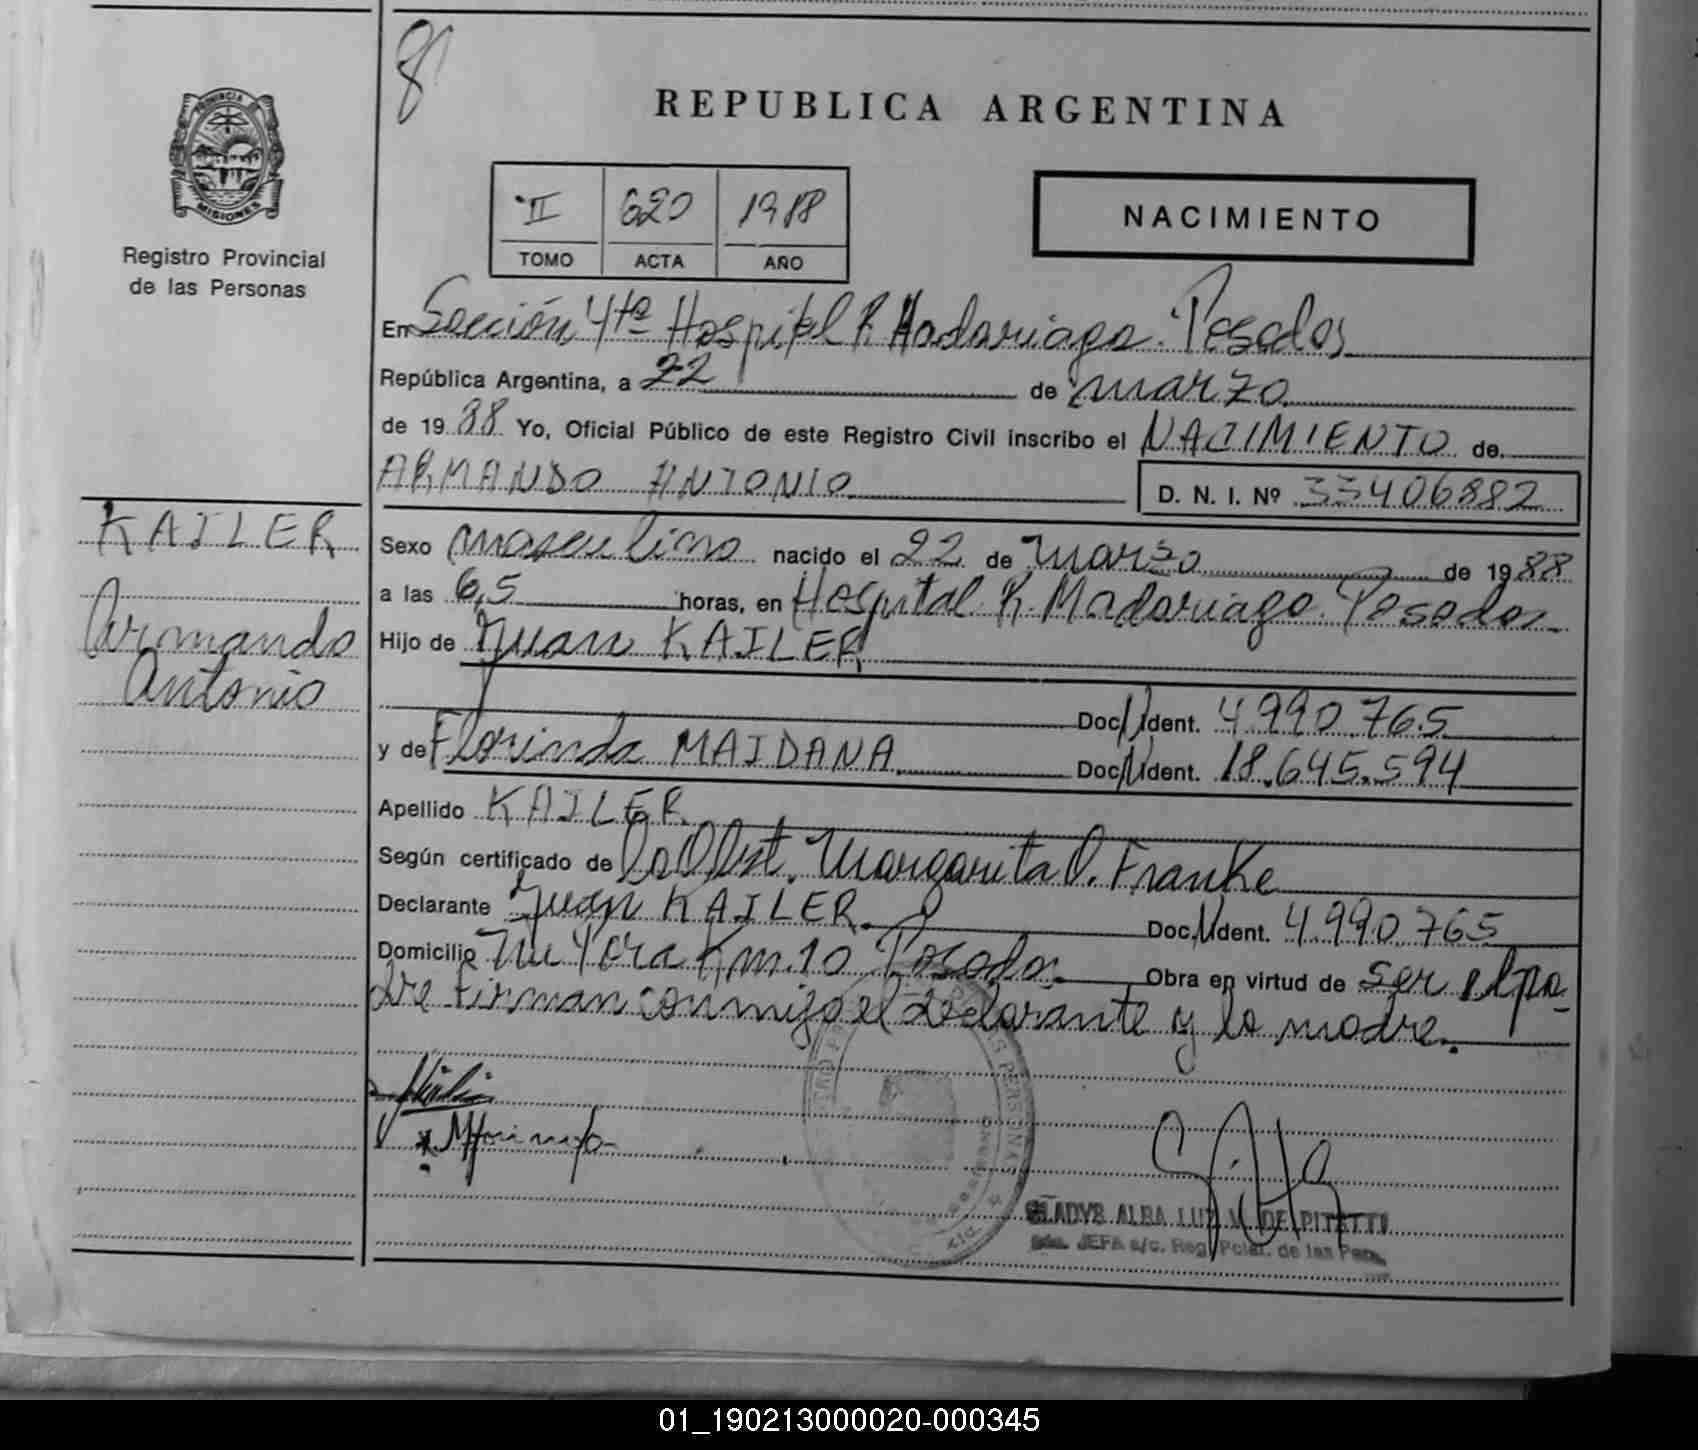 8
REPUBLICA ARGENTINA
II 620 1988
TOMO ACTA AÑO
NACIMIENTO
PROVINCIA DE
MISIONES
Registro Provincial
de las Personas
En Sección 4ta Hospital R. Madariaga. Posadas
República Argentina, a 22 de marzo
de 1988 Yo, Oficial Público de este Registro Civil inscribo el NACIMIENTO de
ARMANDO ANTONIO D. N. I. Nº 33406882
KAILER
Armando
Antonio
Sexo masculino nacido el 22 de marzo de 1988
a las 6,5 horas, en Hospital R. Madariaga. Posadas.
Hijo de Juan KAILER
Doc. Ident. 4.990.765
y de Florinda MAIDANA Doc. Ident. 18.645.594
Apellido KAILER
Según certificado de la Obst. Margarita O. Franke
Declarante Juan KAILER Doc. Ident. 4.990.765
Domicilio Km. 10 Posadas Obra en virtud de ser el pa-
dre Firman conmigo el declarante y la madre.
GLADYS ALBA LUZ V. DE PITATTI
JEFA a/c. Reg. Pcial. de las Pers.
01_190213000020-000345